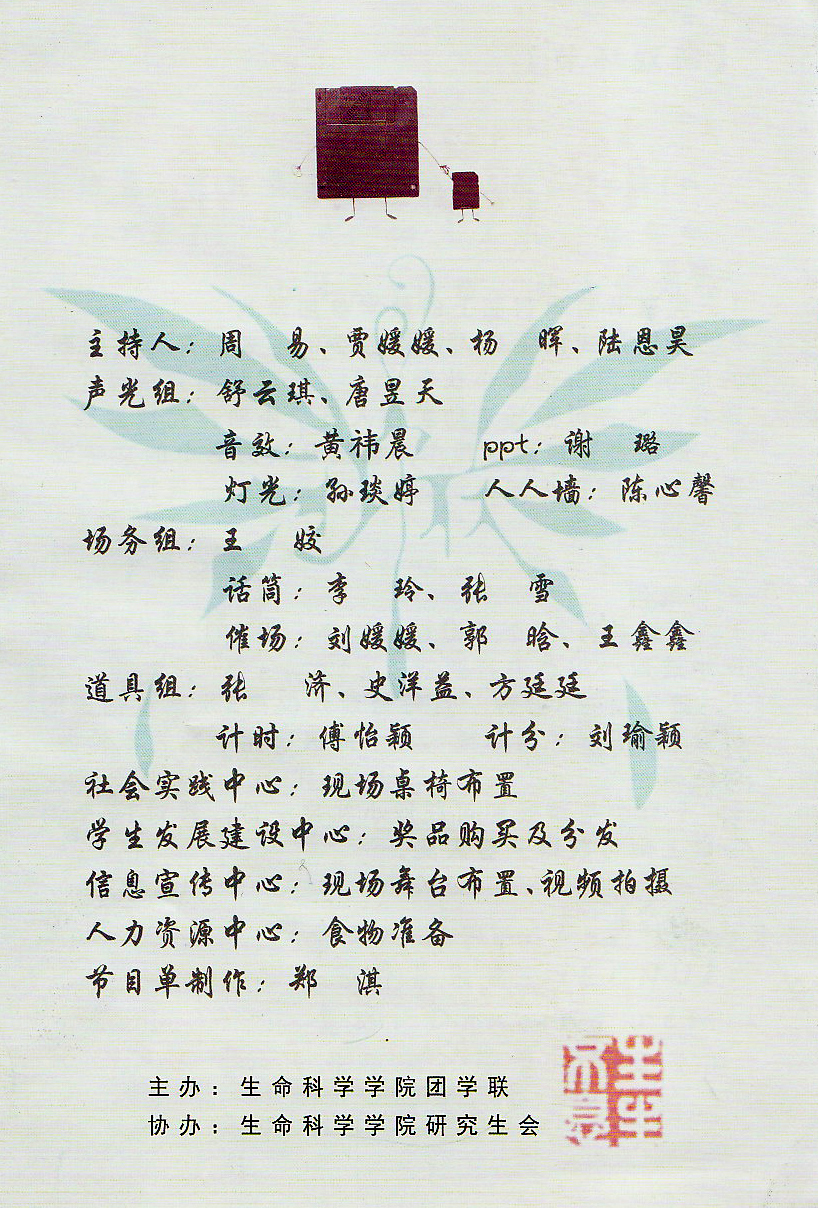 主持人：周　易、贾媛媛、杨　晖、陆恩昊
声光组：舒云琪、唐昱天
音效：黄祎晨　ppt：谢　璐
灯光：孙琰婷　人人墙：陈心馨
场务组：王　姣
话筒：李　玲、张　雪
催场：刘媛媛、郭　晗、王鑫鑫
道具组：张　济、史洋益、方廷廷
计时：傅怡颖　计分：刘瑜颖
社会实践中心：现场桌椅布置
学生发展建设中心：奖品购买及分发
信息宣传中心：现场舞台布置、视频拍摄
人力资源中心：食物准备
节目单制作：郑　淇
主办：生命科学学院团学联
协办：生命科学学院研究生会
生生不息